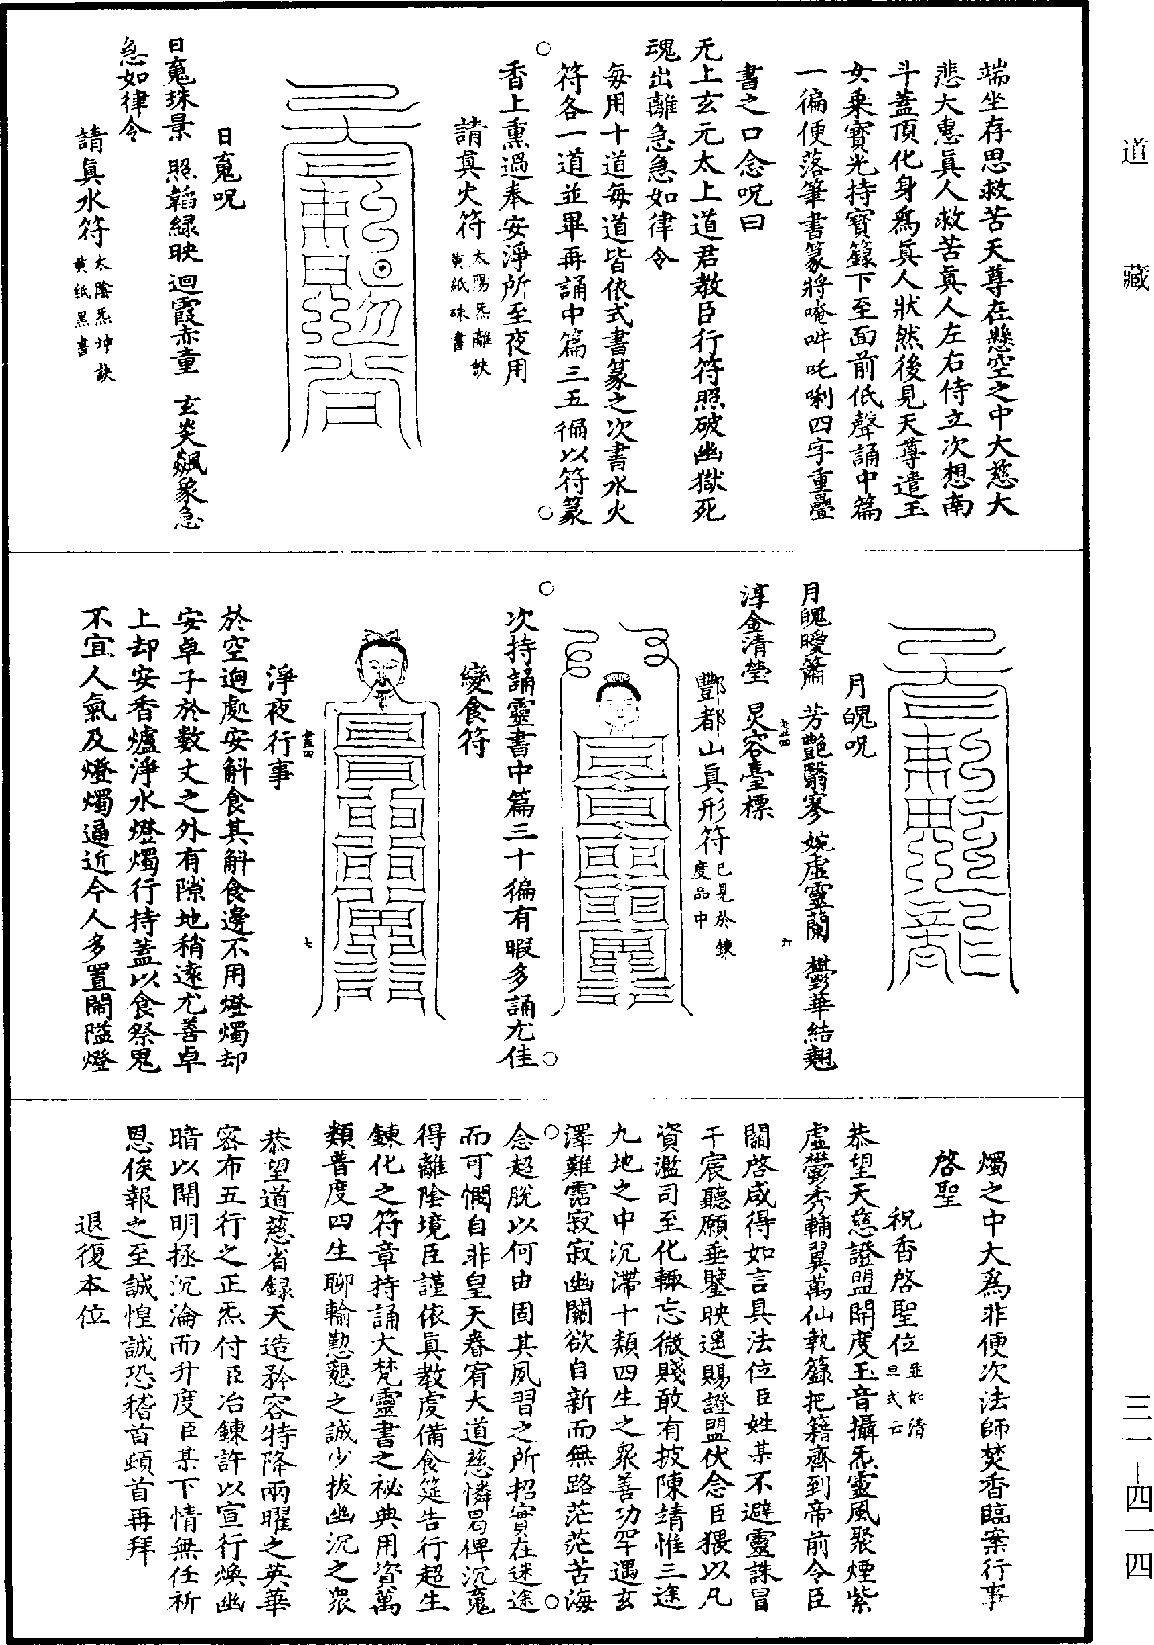 道藏
三一—四一四
端坐存思救苦天尊在懸空之中大慈大
悲大惠真人救苦真人左右侍立次想南
斗蓋頂化身為真人狀然後見天尊遣玉
女乘寶光持寶籙下至面前低聲誦中篇
一徧便落筆書篆將唵吽吒唎四字重疊
書之口念呪曰
无上玄元太上道君教臣行符照破幽獄死
魂出離急急如律令
每用十道每道皆依式書篆之次書水火
符各一道並畢再誦中篇三五徧以符篆
香上熏過奉安淨所至夜用
請真火符太陽炁離訣
黃紙硃書
日䰟呪
日䰟珠景 照韜綠映 迴霞赤童 玄炎飈象急
急如律令
請真水符太陰炁坤訣
黃紙黑書
月魄呪
月魄曖蕭 芳艷翳寥 婉虛靈蘭 鬱華結翹
淳金清瑩 炅容臺標
酆都山真形符已見於鍊
度品中
次持誦靈書中篇三十徧有暇多誦尤佳
變食符
淨夜行事
於空迥處安斛食其斛食邊不用燈燭却
安卓子於數丈之外有隙地稍遠尤善卓
上却安香爐淨水燈燭行持蓋以食祭鬼
不宜人氣及燈燭逼近今人多置閙隘燈
燭之中大為非便次法師焚香臨案行事
啓聖
祝香啓聖位並如清
旦式云
恭望天慈證盟開度玉音攝炁靈風聚煙紫
虛鬱秀輔翼萬仙執籙把籍齊到帝前令臣
關啓咸得如言具法位臣姓某不避靈誅冒
干宸聽願垂鑒映遙賜證盟伏念臣猥以凡
資濫司至化輒忘微賤敢有披陳竊惟三途
九地之中沉滯十類四生之衆善功罕遇玄
澤難霑寂寂幽關欲自新而無路茫茫苦海
念超脫以何由固其夙習之所招實在迷途
而可憫自非皇天眷宥大道慈憐曷俾沉䰟
得離陰境臣謹依真教虔備食筵告行超生
鍊化之符章持誦大梵靈書之祕典用資萬
類普度四生聊輸懃懇之誠少拔幽沉之衆
恭望道慈省録天造矜容特降兩曜之英華
密布五行之正炁付臣冶鍊許以宣行煥幽
暗以開明拯沉淪而升度臣某下情無任祈
恩俟報之至誠惶誠恐稽首頓首再拜
退復本位